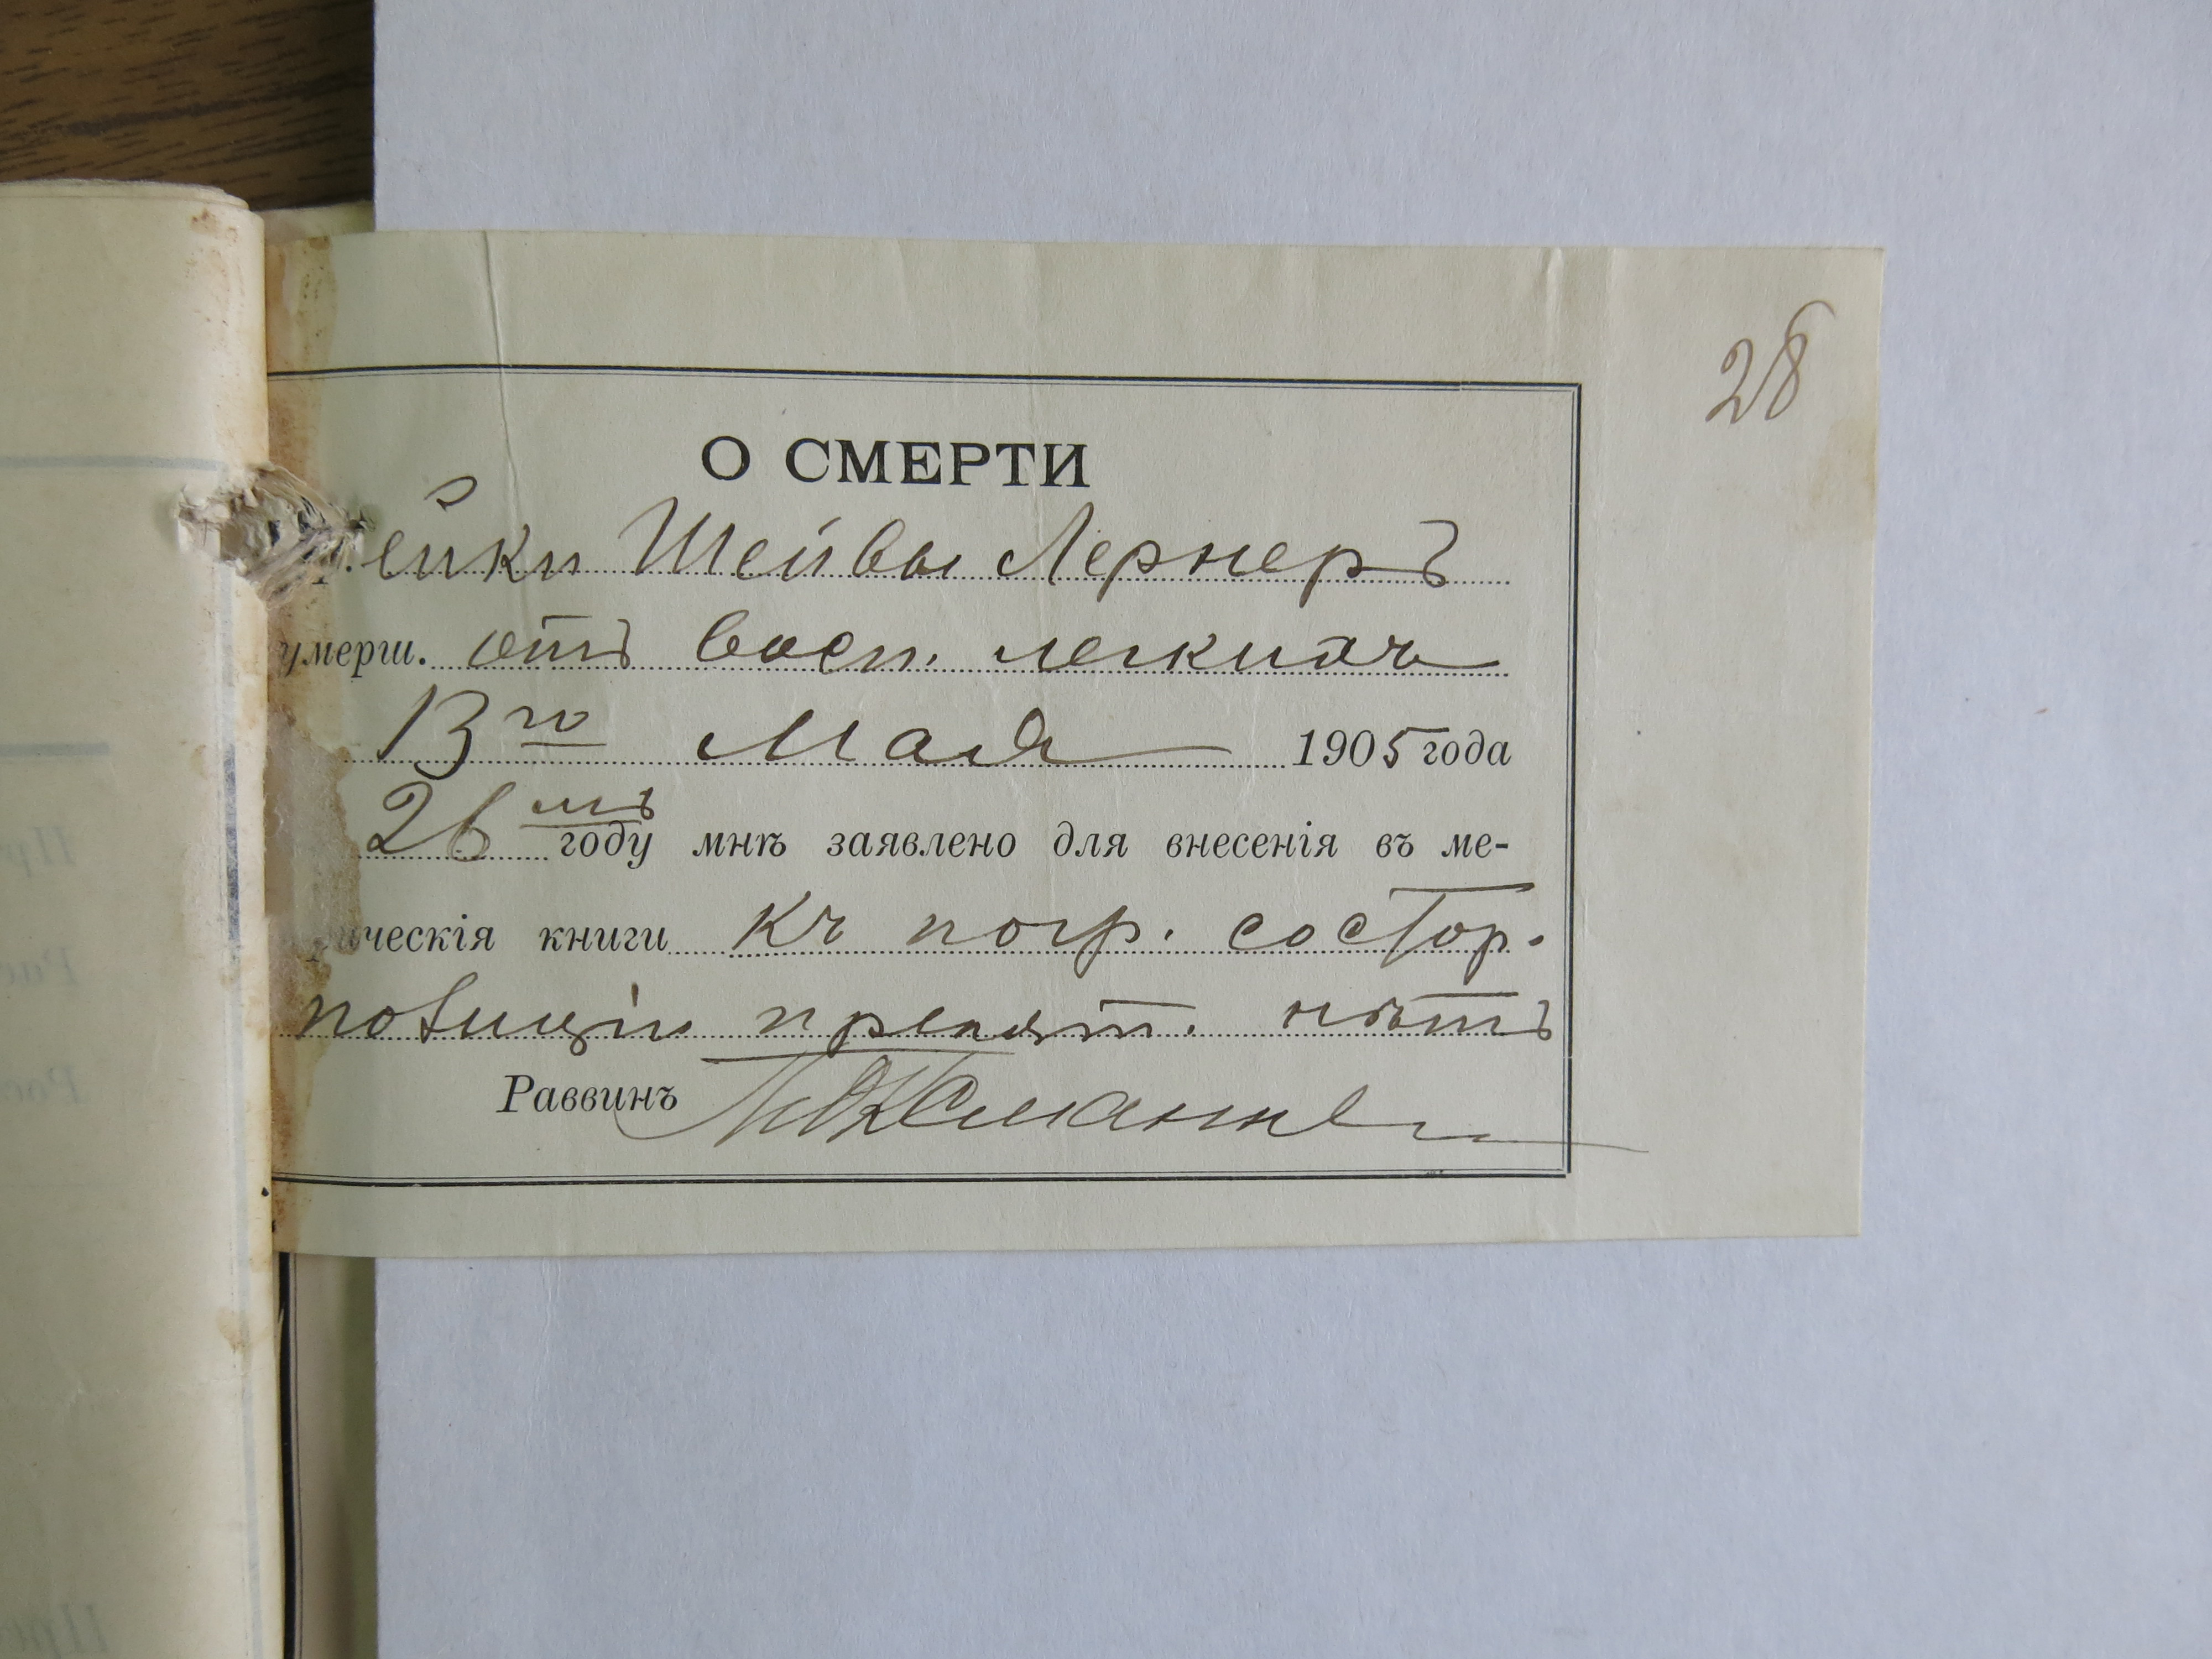 28
О СМЕРТИ
ейки Шейвы Лернеръ
умерш. отъ восп. легкихъ
13го Мая 1905 года
26мъ году мнѣ заявлено для внесенія въ ме-
рическія книги Къ погр. со стор.
полиціи препят. нѣтъ
Раввинъ